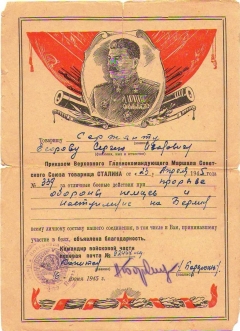 Товарищу Сержанту
Егорову Сергею
Приказом Верховного Главнокомандующего Маршала Совет-
ского Союза товарища СТАЛИНА от 23 Апреля 1945 года
№ 339 за отличные боевые действия при прорыве
обороны немцев и
наступлении на Берлин
всему личному составу нашего соединения, в том числе и Вам, принимавшему
участие в боях, объявлена благодарность.
Командир войсковой части
полевая почта №
Капитан
1945 г.